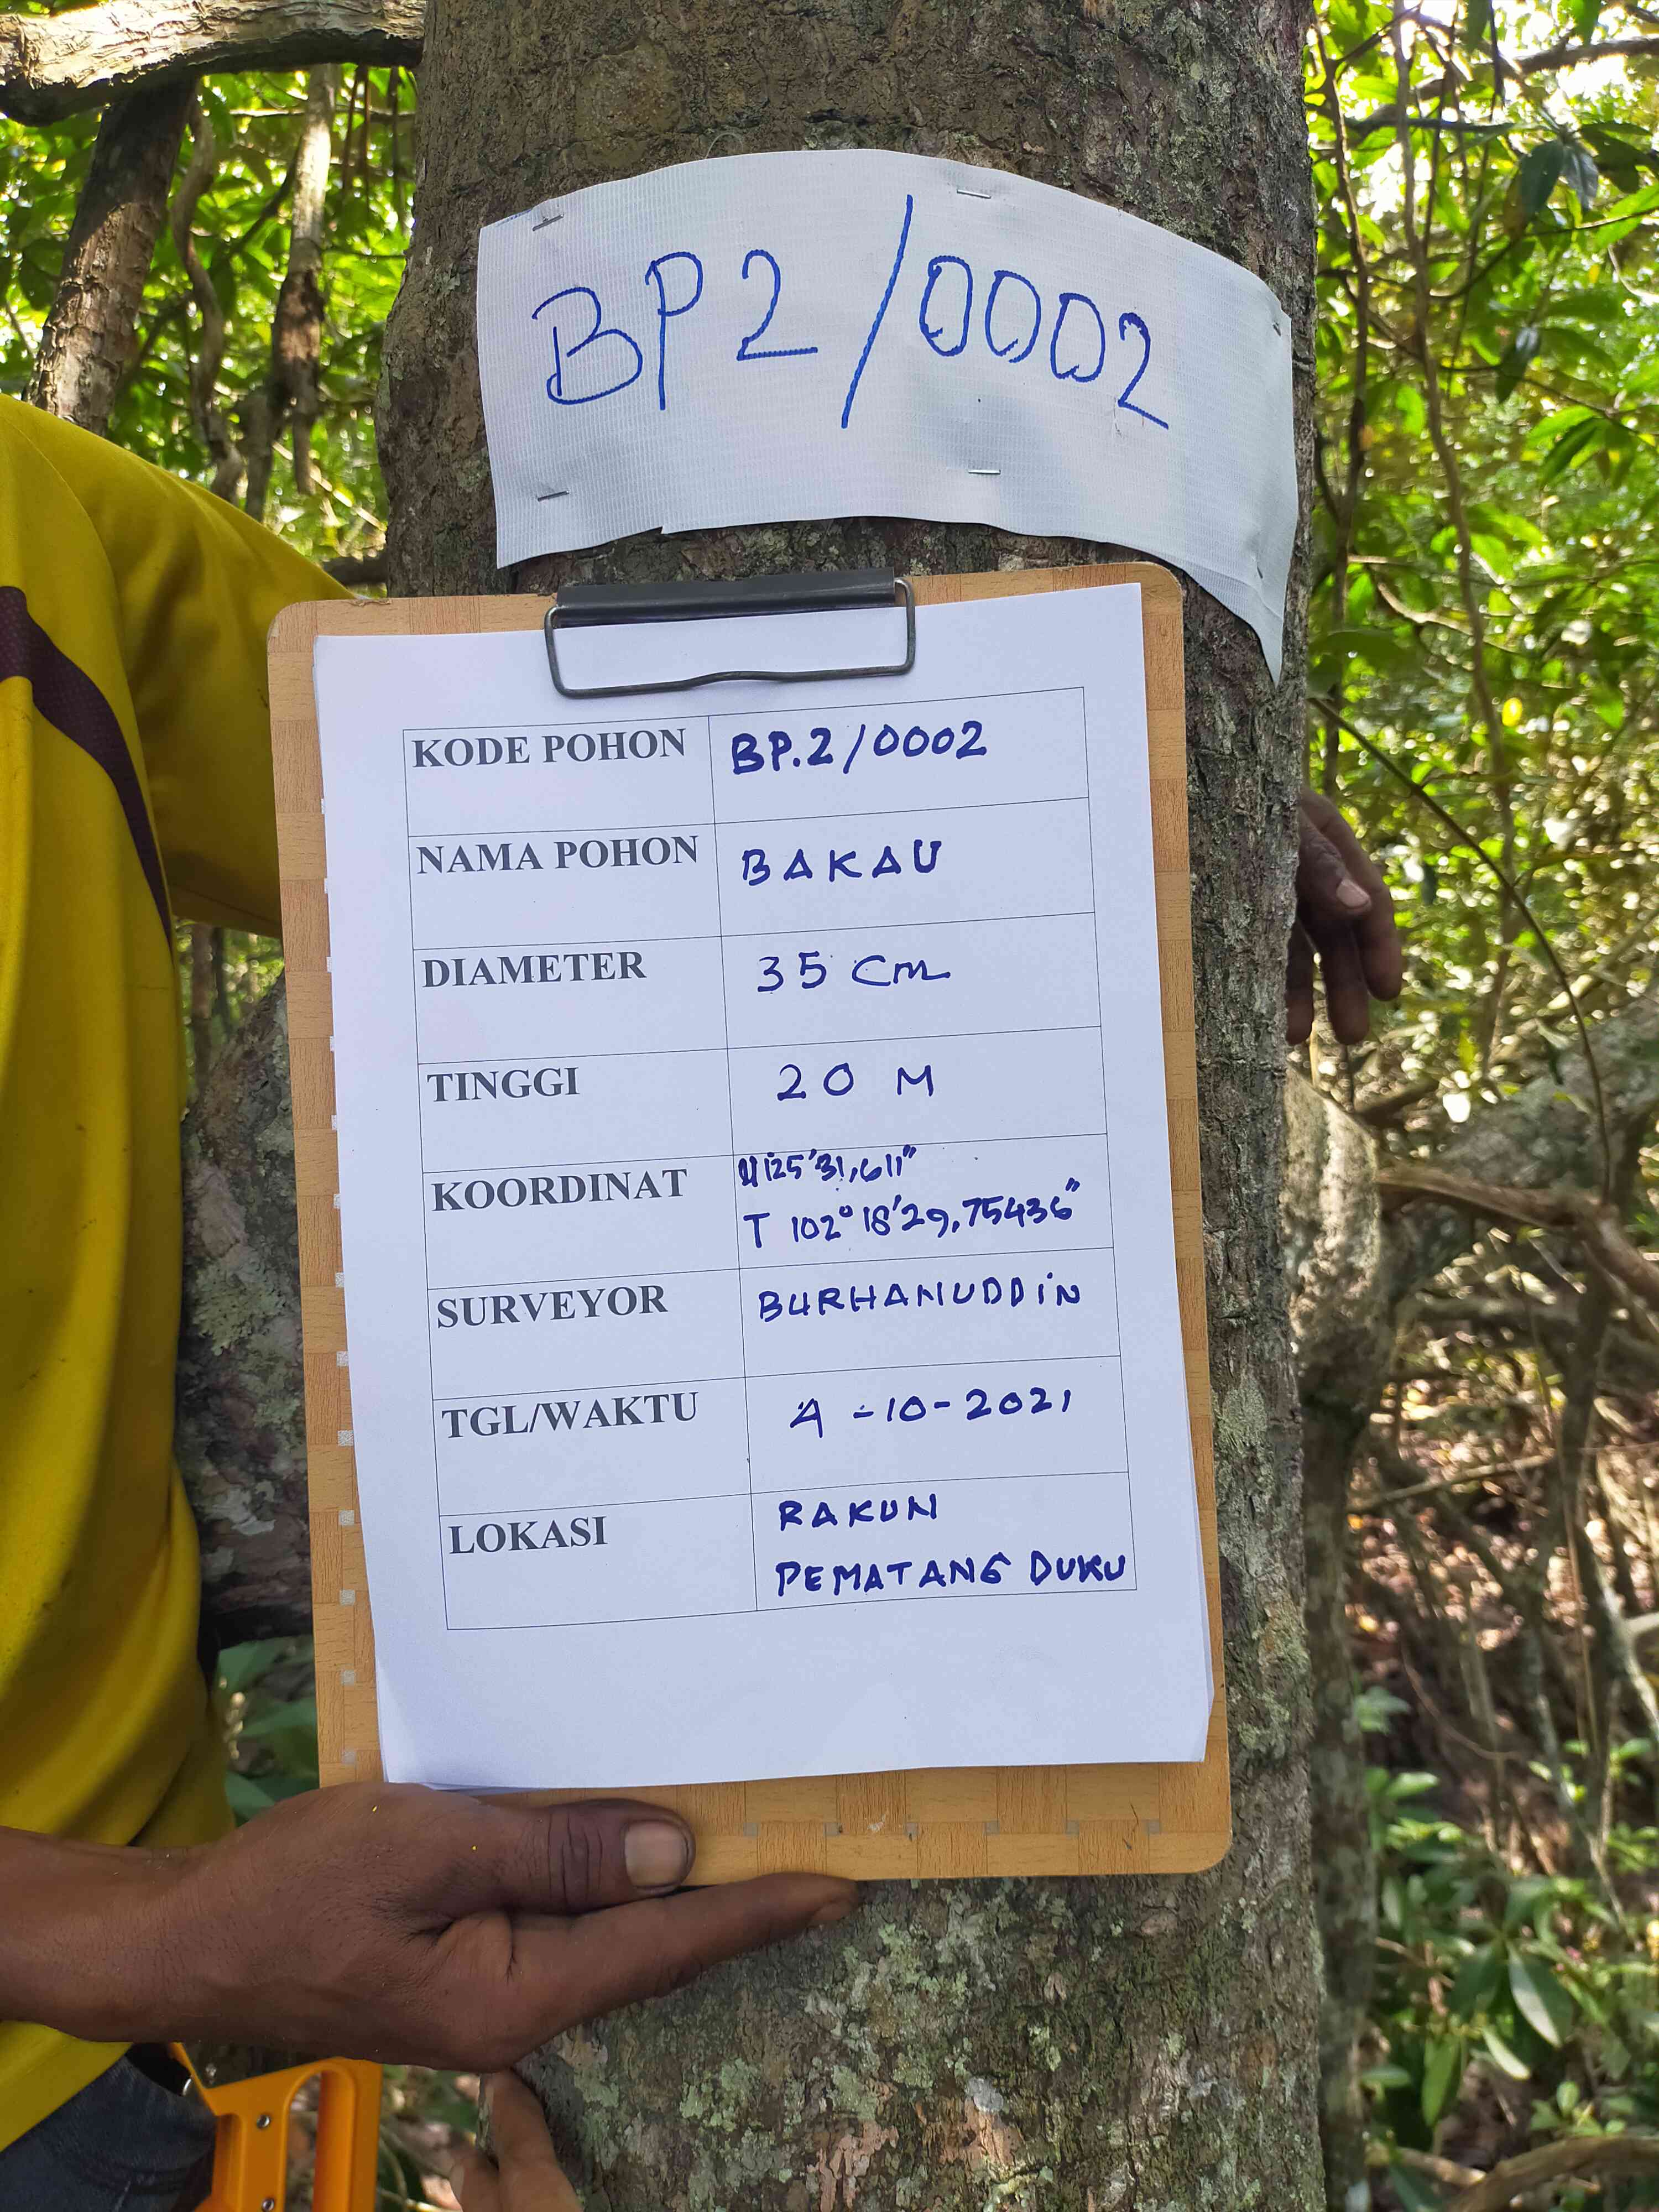 BP2/0002
KODE POHON BP.2/0002
NAMA POHON BAKAU
DIAMETER 35 Cm
TINGGI 20 M
KOORDINAT
25'31,611"
T 102° 18'29,75436"
SURVEYOR BURHANUDDiN
TGL/WAKTU 4-10-2021
LOKASI RAKUN
PEMATANG DUKU